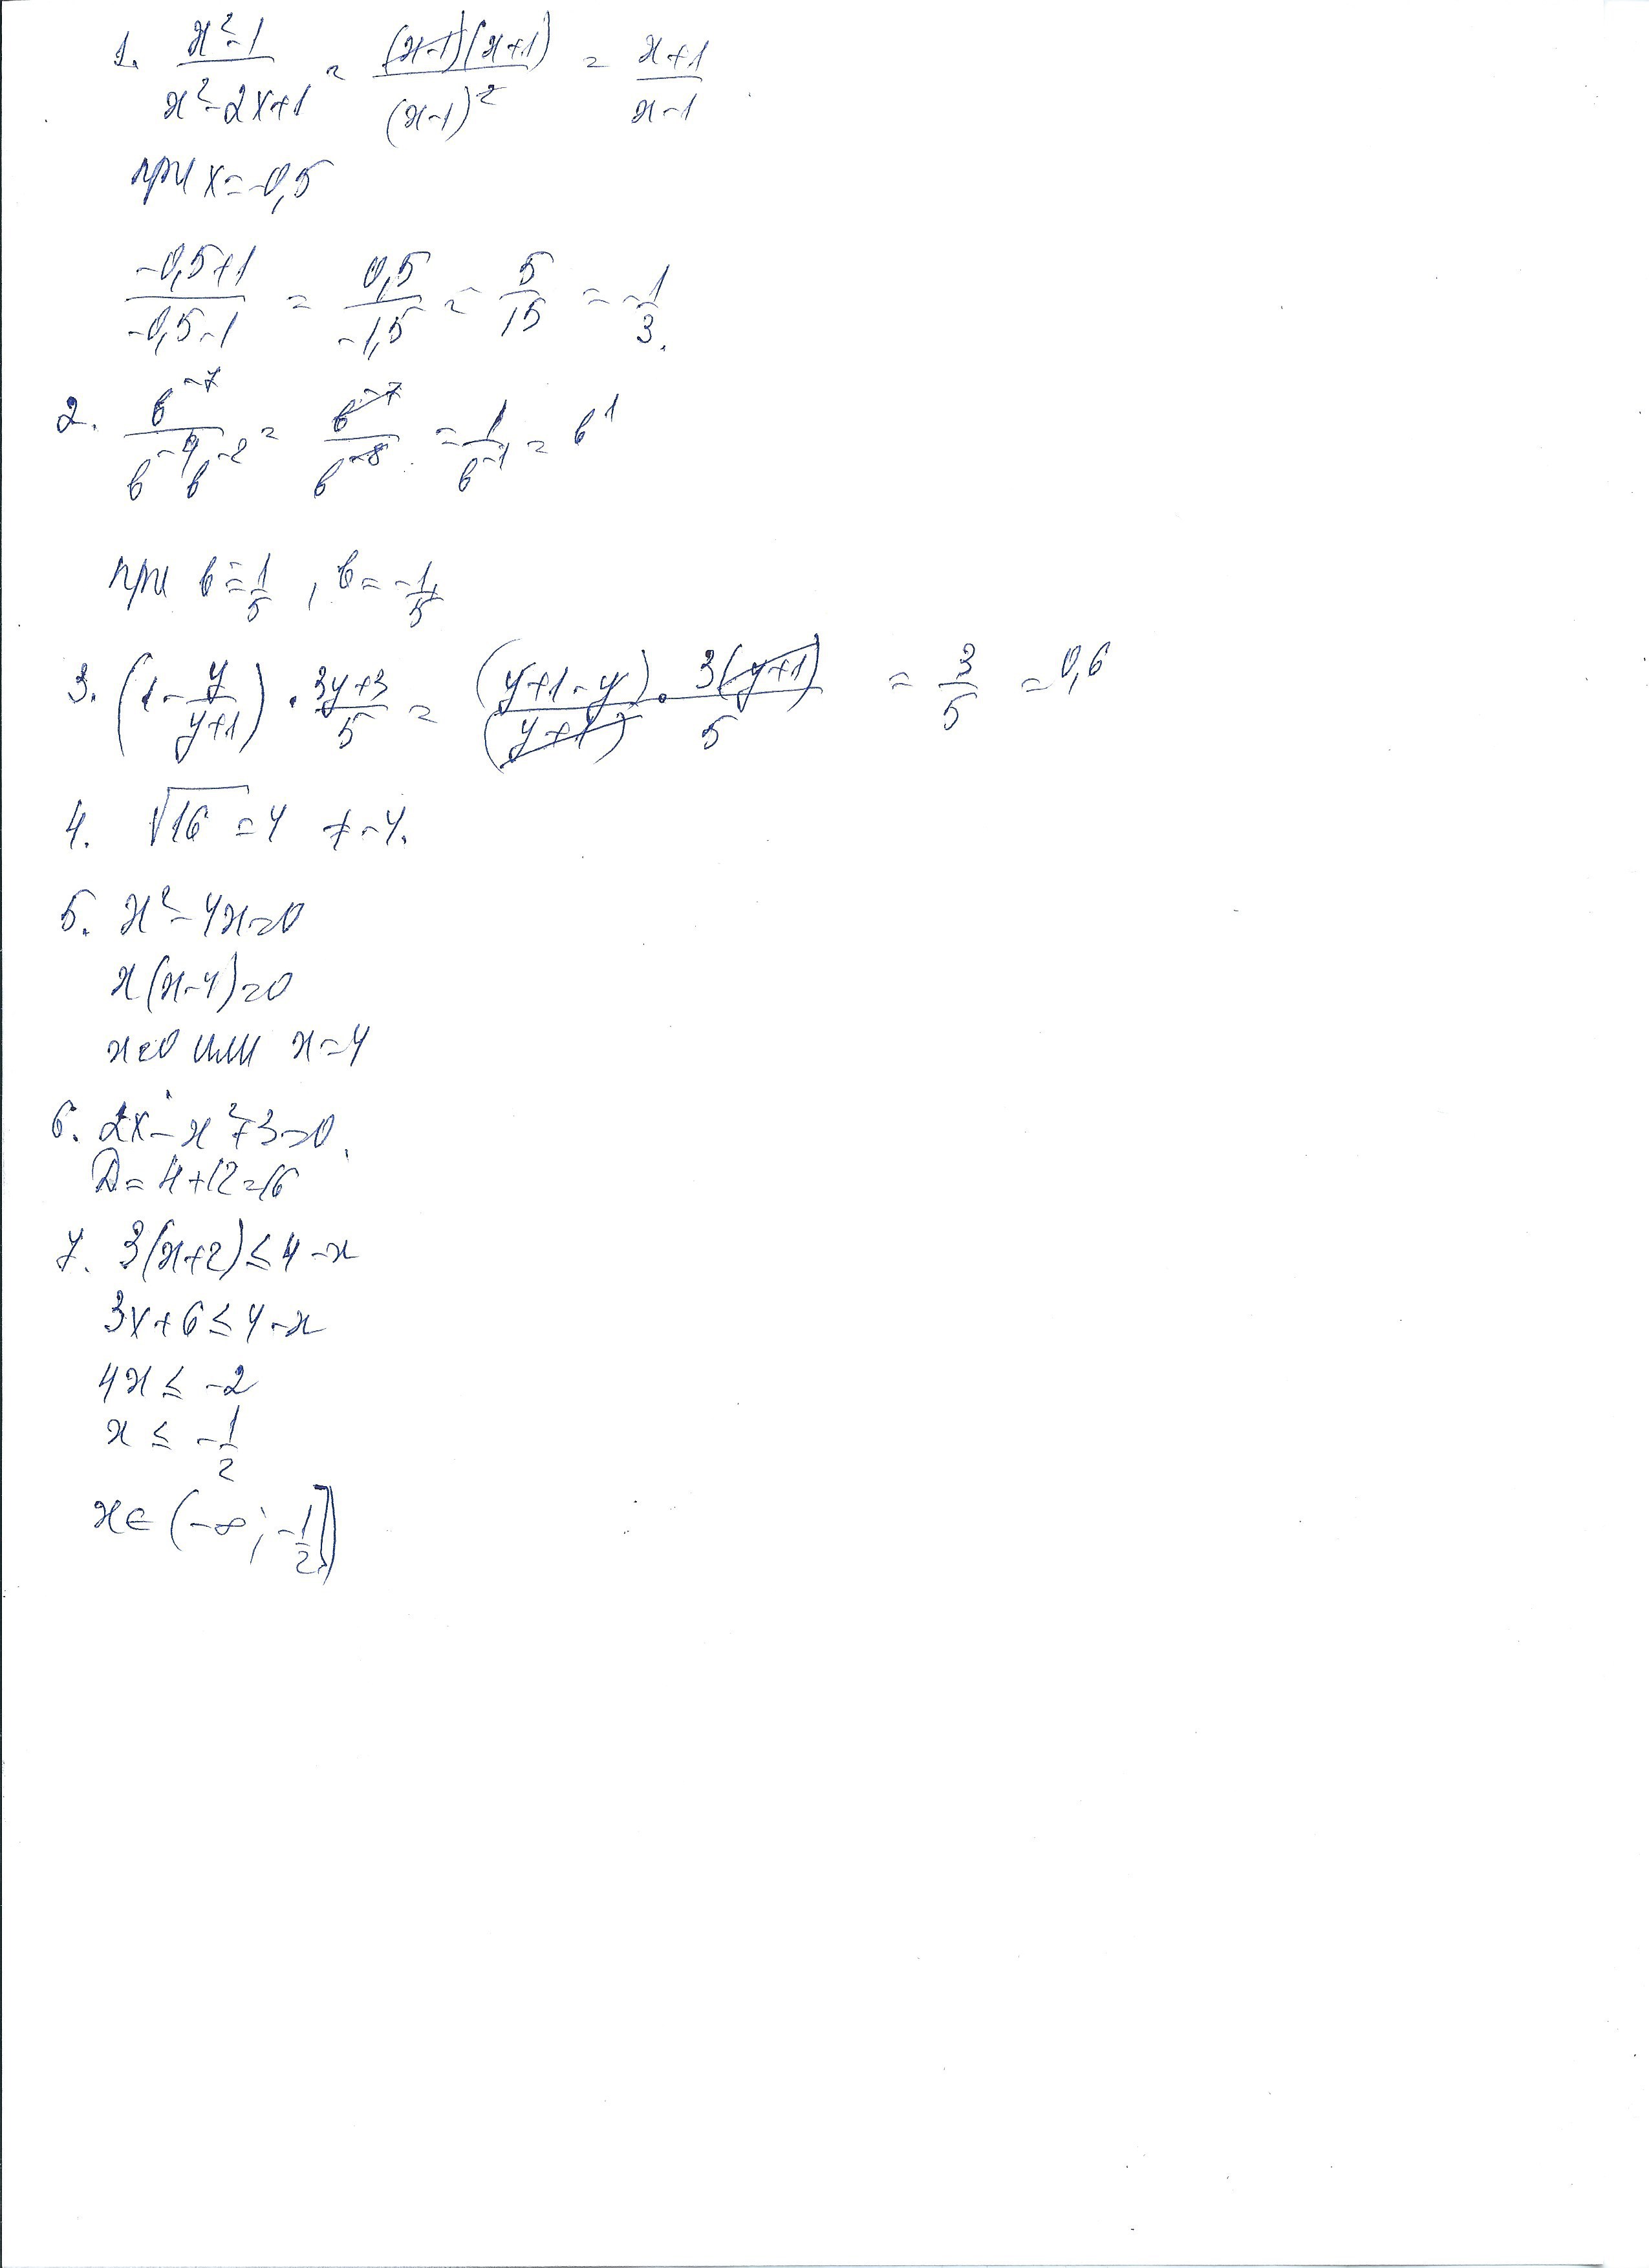 1. (x²-1)/(x²-2x+1) = ((x-1)(x+1))/(x-1)² = (x+1)/(x-1)
при x=-0,5
(-0,5+1)/(-0,5-1) = 0,5/(-1,5) = -5/15 = -1/3.
2. b⁻⁷/(b⁻⁴b⁻²) = b⁻⁷/b⁻⁸ = 1/b⁻¹ = b¹
при b=1/5, b=-1/5
3. (1-y/(y+1))·(3y+3)/5 = (y+1-y)/(y+1)·3(y+1)/5 = 3/5 = 0,6
4. √16 = 4 ≠ -4.
5. x²-4x=0
x(x-4)=0
x=0 или x=4
6. 2x-x²+3=0
D=4+12=16
7. 3(x+2)≤4-x
3x+6≤4-x
4x≤-2
x≤-1/2
x∈(-∞;-1/2]